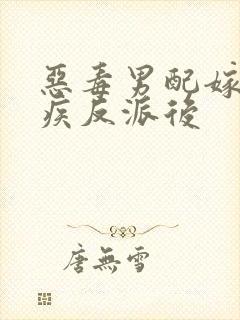 惡毒男配嫁
疾反派後
唐無雪